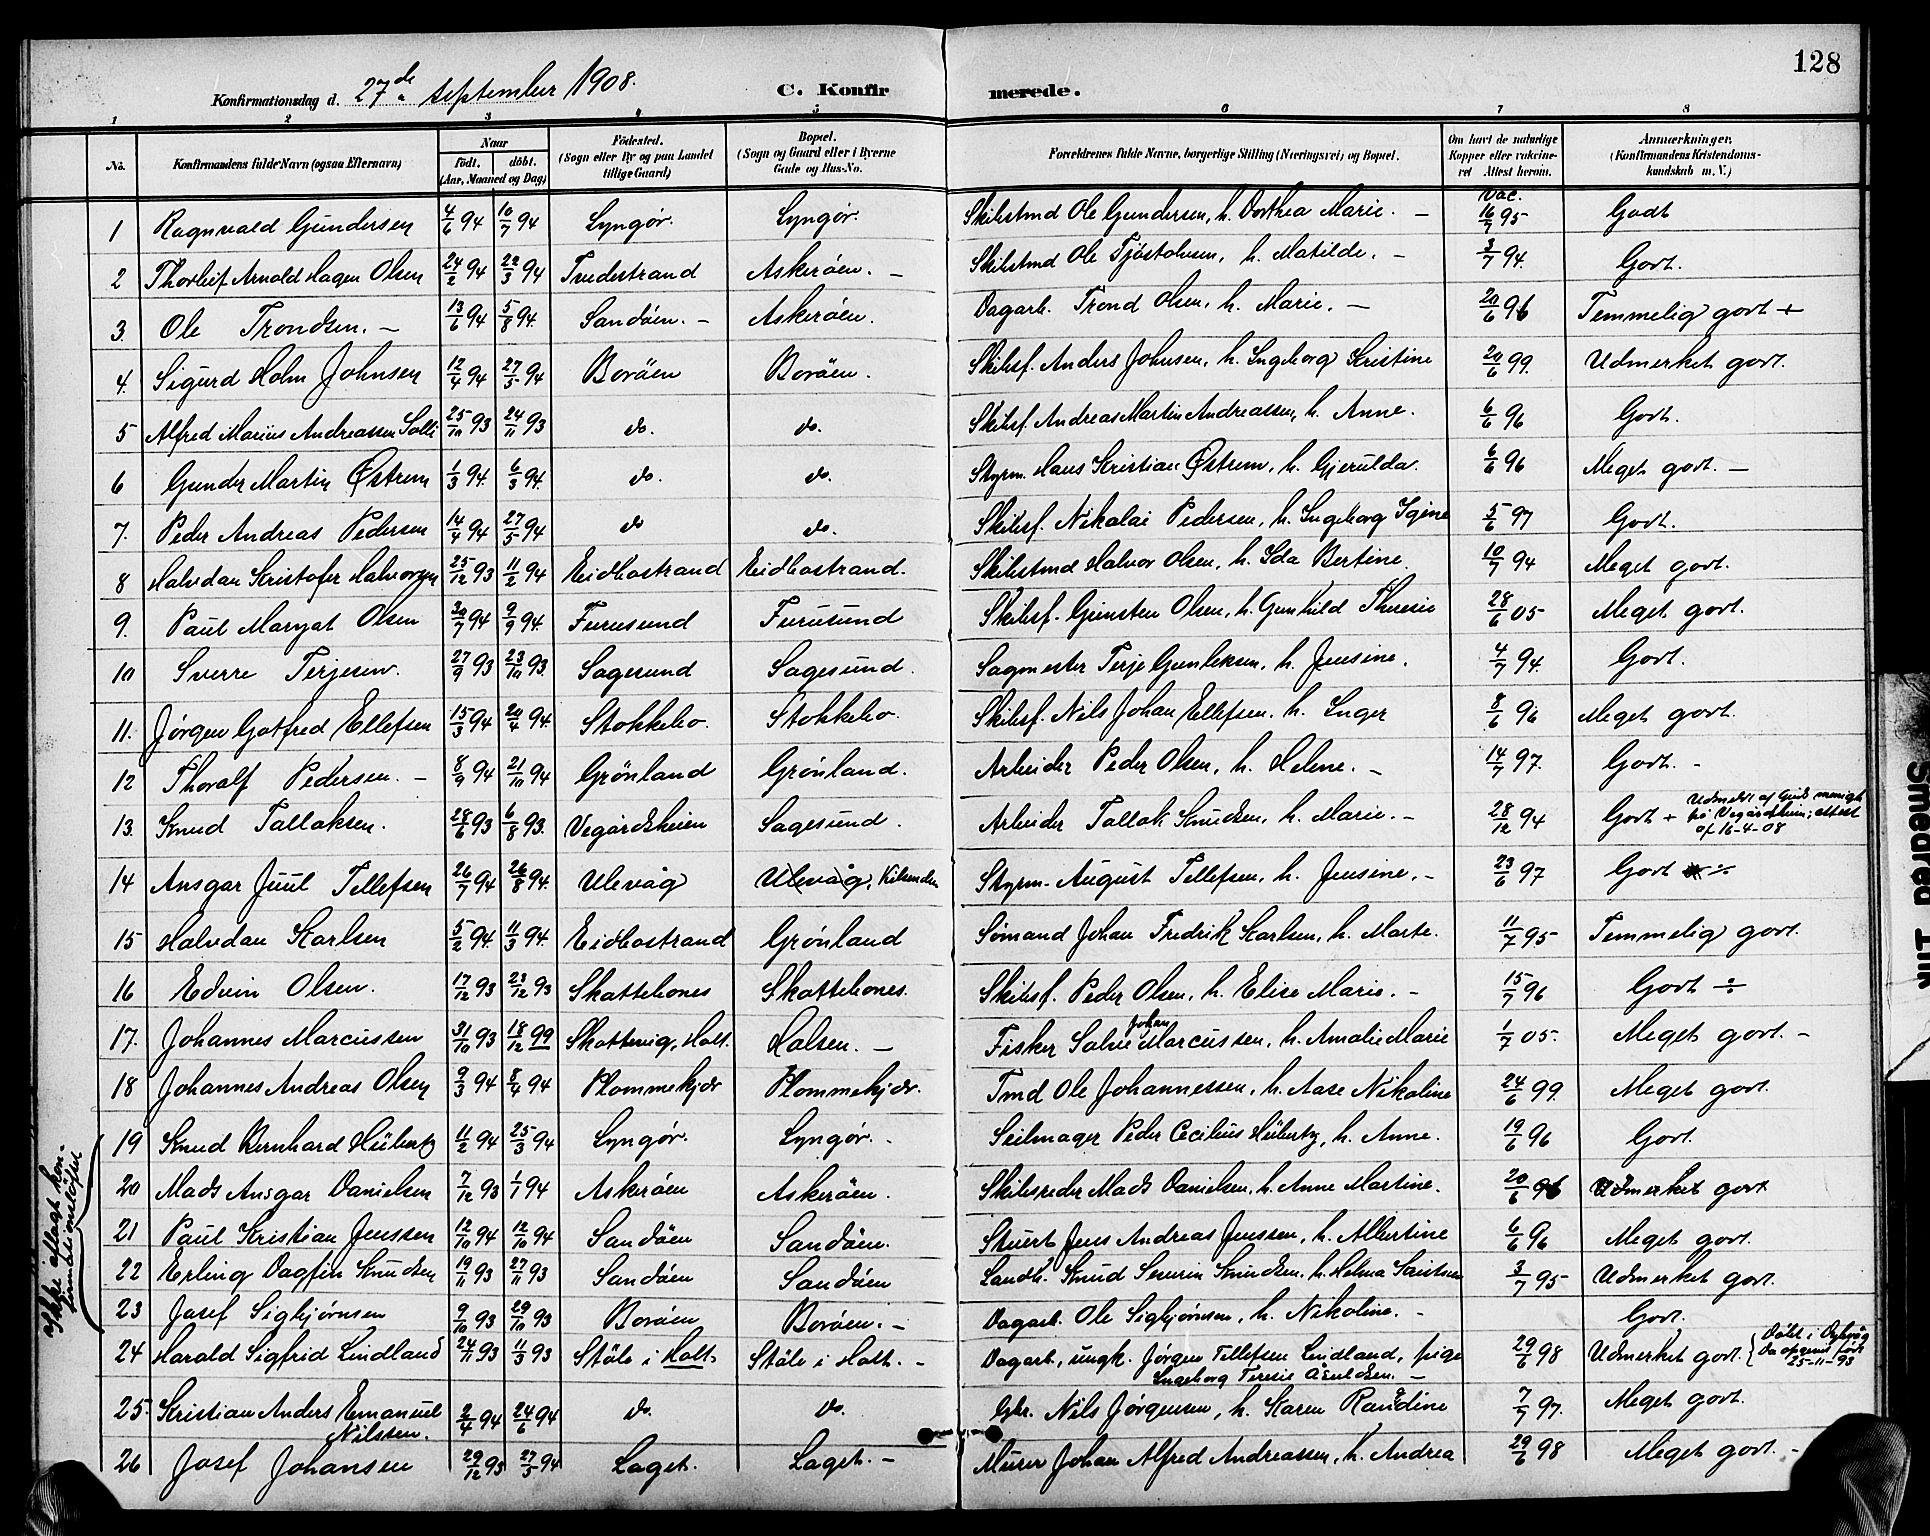 128
Konfirmationsdag d. 27de september 1908. C. Konfirmerede.
1 2 3 4 5 6 7 8
No. Konfirmandens fulde Navn (ogsaa Efternavn) Naar født. døbt. (Aar, Maaned og Dag) Fødested. (Sogn eller By og paa Landet tillige Gaard) Bopæl. (Sogn og Gaard eller i Byerne Gade og Hus-No. Forældrenes fulde Navne, borgerlige Stilling (Næringsvei) og Bopæl. Om havt de naturlige Kopper eller vaccineret Attest herom. Anmærkninger. (Konfirmandens Kristendomskundskab m. V.)
1 Ragnvald Gundersen 4/6 94 10/7 94 Lyngør. Lyngør. Skibstmd Ole Gundersen, h. Dorthea Marie. — Vac. 16/7 95 Godt
2 Thorleif Arnold Hagen Olsen 24/2 94 22/3 94 Tvedestrand Askerøen. — Skibstmd Ole Tjøstolvsen, h. Matilde. — 3/7 94. Godt.
3. Ole Trondsen. — 13/6 94 5/8 94. Sandøen. — Askerøen. Dagarb. Trond Olsen, h. Marie. — 20/6 96 Temmelig godt +
4. Sigurd Holm Johnsen 12/4 94 27/5 94 Borøen Borøen. Skibsf. Anders Johnsen, h. Ingeborg Kristine 20/6 99. Udmerket godt.
5 Alfred Marius Andreassen Solli 25/10 93 24/11 93 do. do. Skibsf. Andreas Martin Andreassen, h. Anne. 6/6 96 Godt.
6 Gunder Martin Østrem 1/3 94. 6/5 94. do. do. Styrm. Hans Kristian Østrem, h. Gjerulda. 6/6 96 Meget godt. —
7. Peder Andreas Pedersen 14/4 94 27/5 94 do do. Skibsf. Nikolai Pedersen, h. Ingeborg Igine 5/6 97 Godt.
8 Halvdan Kristofer Halvorsen 25/12 93 11/2 94 Eidbostrand Eidbostrand. Skibstmd Halvor Olsen, h. Ida Bertine. 10/7 94 Meget godt.
9. Paul Margat Olsen 30/7 94 9/9 94. Furusund Furusund Skibsf. Gunsten Olsen, h. Gunhild Theresie 28/6 05 Meget godt.
10 Sverre Terjesen. 27/9 93 23/10 93. Sagesund Sagesund. Sagmester Terje Gunleksen, h. Jensine. 4/7 94. Godt.
11. Jørgen Gotfred Ellefsen 15/3 94 20/4 94. Stokkebo Stokkebo. Skibsf. Nils Johan Ellefsen. h. Inger 8/6 96 Meget godt.
12 Thoralf Pedersen. — 8/9 94 21/10 94 Grønland Grønland. Arbeider Peder Olsen, h. Helene. — 14/7 97. Godt. -
13. Knud Tallaksen. 28/6 93 6/8 93. Vegårdsheien Sagesund. Arbeider Tallak Knudsen, h. Marie. — 28/12 94 Godt + Udmeldt af menigh på Vegårdsheien; attest af 16-4-08
14 Ansgar Juul Tellefsen 26/7 94 26/8 94. Ulevåg Ulevåg, Kilsunden Styrm. August Tellefsen, h. Jensine. — 23/6 97 Godt ÷
15 Halvdan Karlsen 5/2 94 11/3 94. Eidbostrand Grønland Sømand Johan Fredrik Karlsen, h. Marte. 11/7 95 Temmelig godt.
16 Edvin Olsen. 17/12 93 23/12 93 Skottebones Skottebones. Skibsf. Peder Olsen, h. Elise Marie. — 15/7 96 Godt ÷
17. Johannes Marcussen 31/10 93 18/12 99 Skottevig, Holt. Holsen. — Fisker Salve Johan Marcussen, h. Amalie Marie 1/7 05. Meget godt. —
18 Johannes Andreas Olsen 9/3 94 8/4 94 Plommekjær Plommekjær. Tmd Ole Johannessen, h. Aase Nikoline 24/6 99. Meget godt.
19 Knud Bernhard Hübertz 11/2 94 25/3 94 Lyngør. Lyngør. — Seilmager Peder Cecilius Hübertz, h. Anne. 19/6 96 Godt.
20 Mads Ansgar Danielsen 7/12 93 1/1 94 Askerøen Askerøen. Skibsreder Mads Danielsen, h. Anne Martine. 20/6 96 Udmerket godt
21 Paul Kristian Jenssen 12/10 94 12/10 94 Sandøen Sandøen. Stuert Jens Andreas Jenssen, h. Albertine 6/6 96 Meget godt.
22 Erling Dagfin Knudsen 19/11 93 27/11 93 Sandøen Sandøen Landh. Knud Severin Knudsen, h. Helma 3/7 95 Udmerket godt.
23 Josef Sigbjørnsen 9/10 93 29/10 93 Borøen Borøen. — Dagarb. Ole Sigbjørnsen, h. Nikoline. — Godt.
24 Harald Sigfrid Lindland 24/11 93 11/3 93 Støle i Holt Støle i Holt. — Dagarb., ungk. Jørgen Tellefsen Lindland, pige Ingeborg Teresie Åsuldsen. — 29/6 98 Udmerket godt. { Døbt i Dybvåg Da opgivet født 25-11-93
25. Kristian Anders Emanuel Nilssen. 2/4 94 24/6 94 do. do. Gbr. Nils Jørgensen, h. Karen Randine 7/7 97. Meget godt.
26 Josef Johansen 29/12 93 27/5 94 Laget. Laget. — Murer Johan Alfred Andreassen, h. Andrea 29/6 98 Meget godt. —
Ikke aflagt konfirmationsløftet
Smedrød Trk